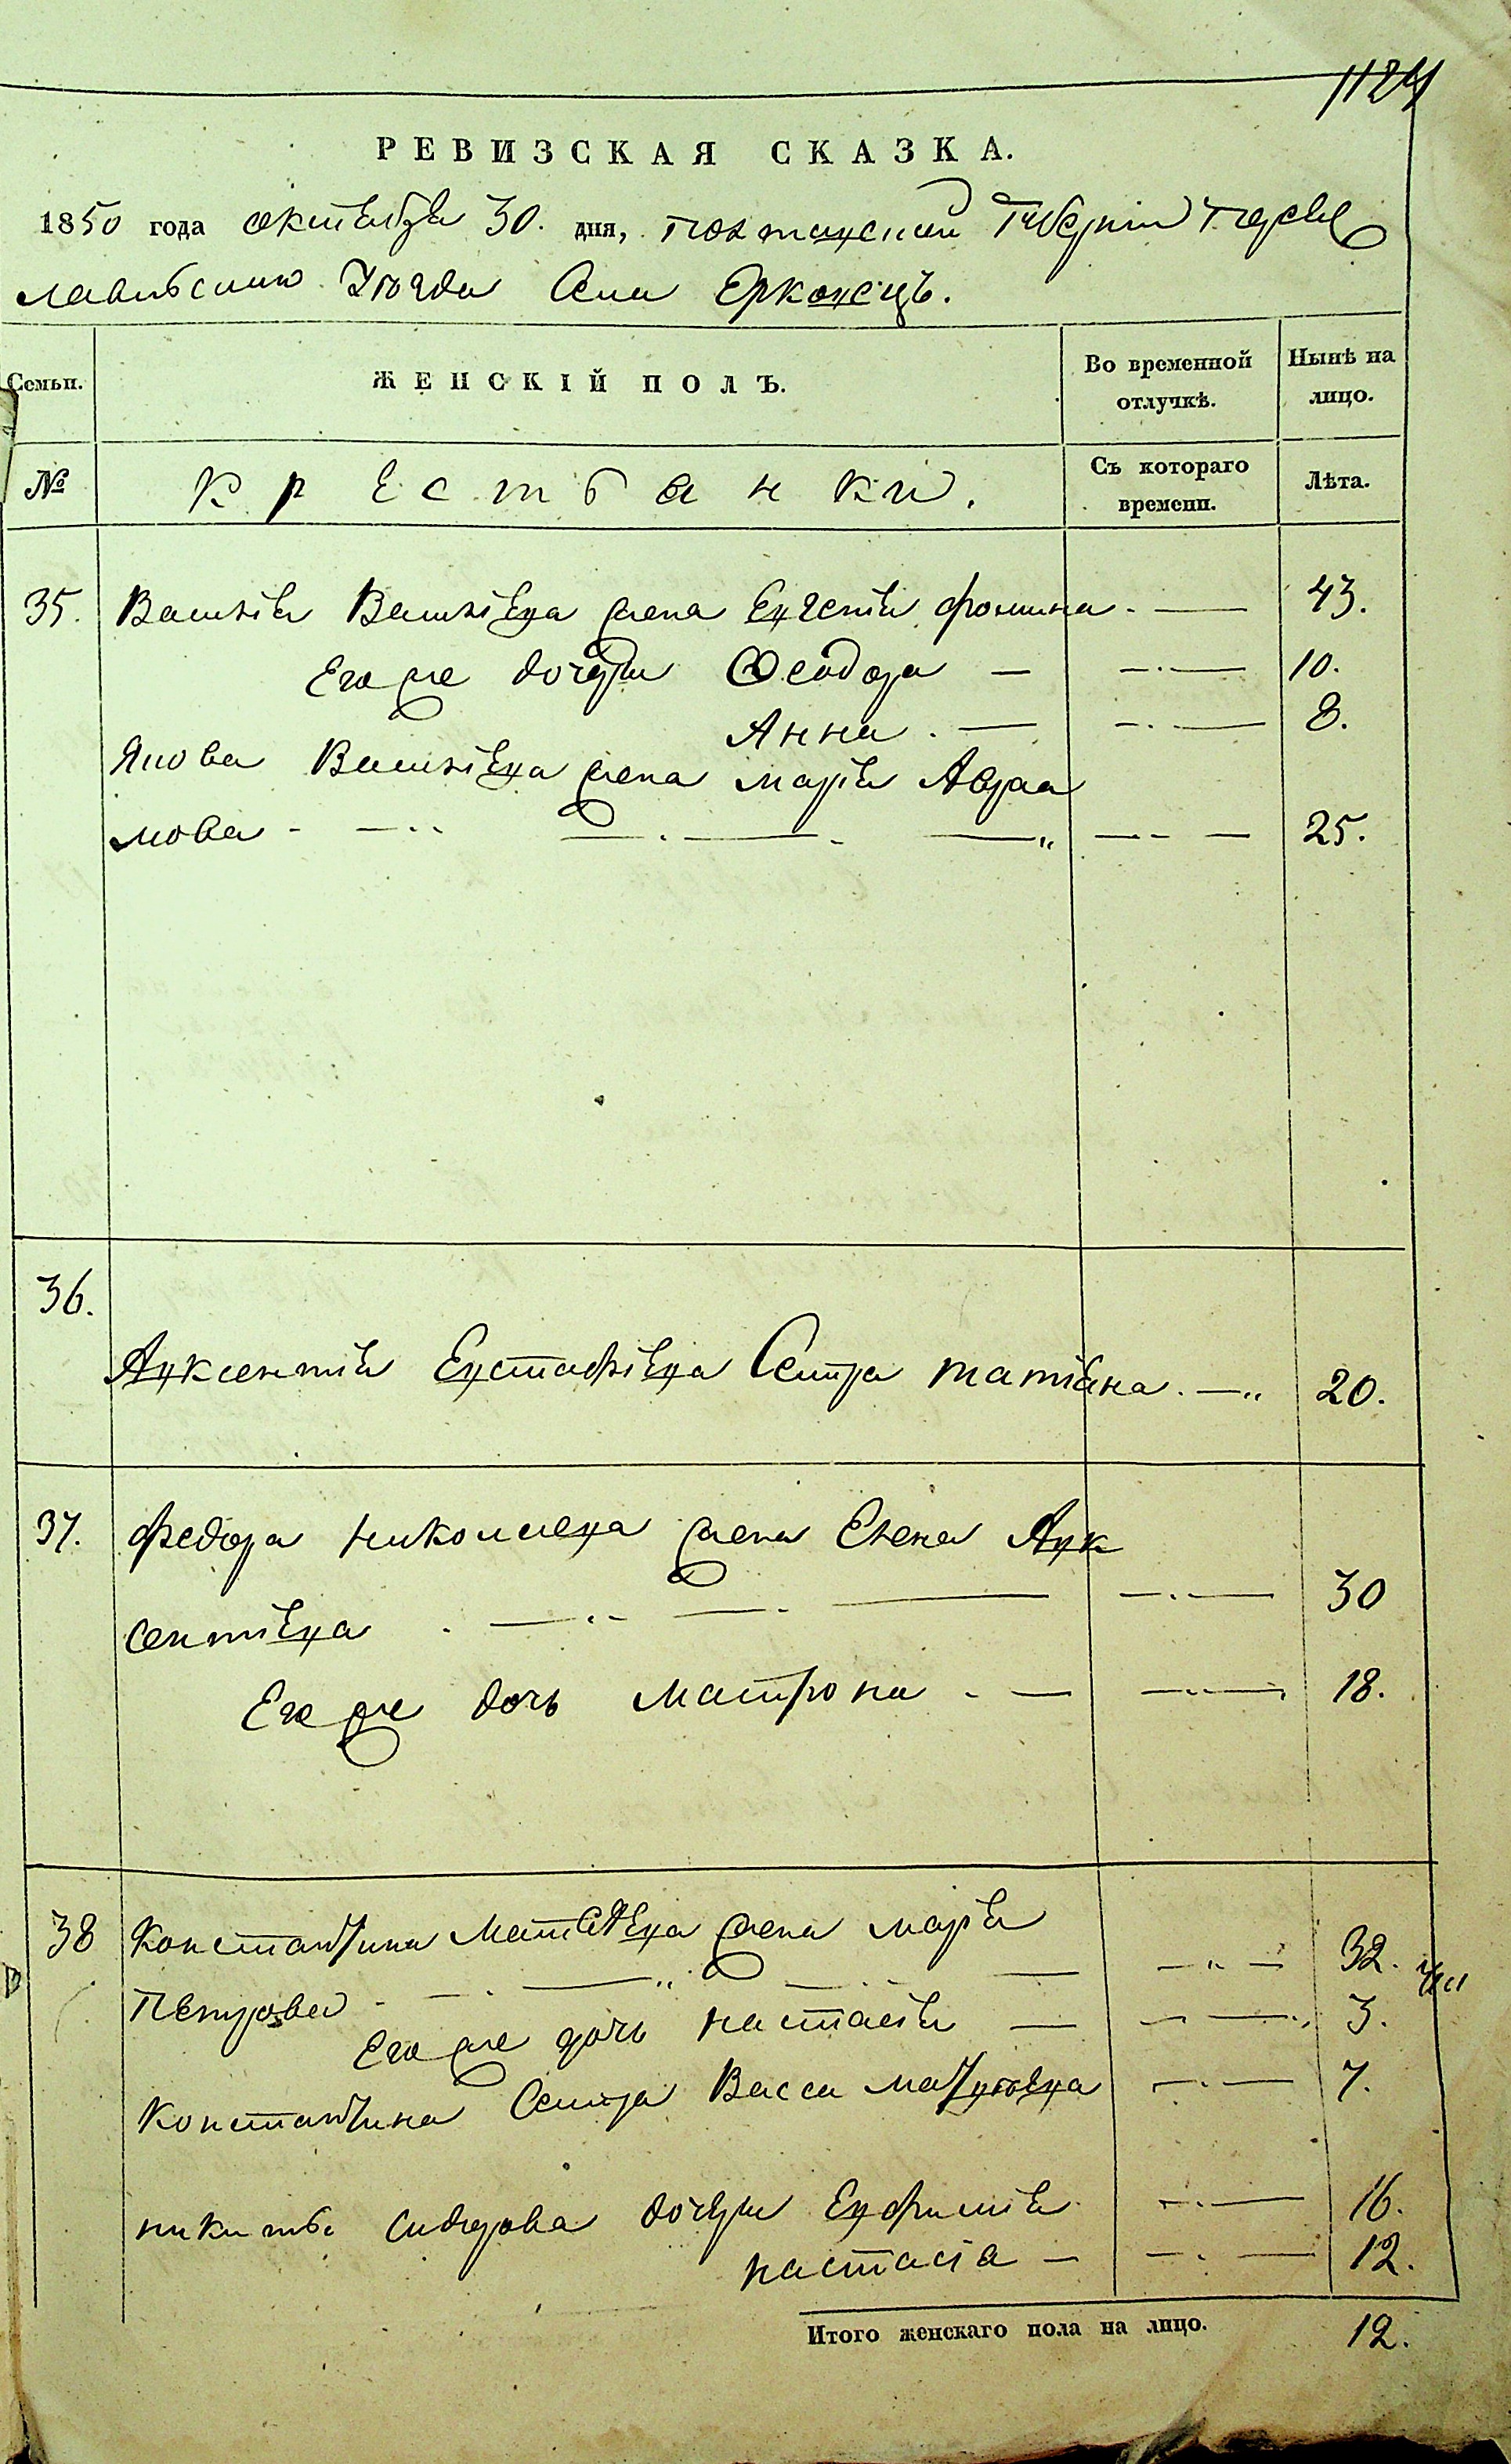 1124
РЕВИЗСКАЯ СКАЗКА.
1850 года октября 30. дня, Полтавской Губерніи Переяс
лавскаго Уѣзда Села Ерковецъ.
Семьи. ЖЕНСКІЙ ПОЛЪ. Во временной отлучкѣ. Нынѣ на лицо.
№ Крестьянки. Съ котораго времени. Лѣта.
35. Василія Василіева жена Евгенія Фомина. — 43.
Его же дочери Феодора — — 10.
Анна. — — 8.
Якова Василіева жена Марія Авраа
мова — — 25.
36.
Авксентія Евстафіева Сестра Татіана. — 20.
37. Федора Николаева жена Елена Авк
сентіева — — 30
Его же дочь Матрона — — 18.
38 Константина Матвѣева жена Марія
Петрова — — 32.
Его же дочь Настасія — — 3.
Константина Сестра Васса — 7.
Никиты Сидорова дочери Евфимія — 16.
Настасіа — — 12.
Итого женскаго пола на лицо. 12.